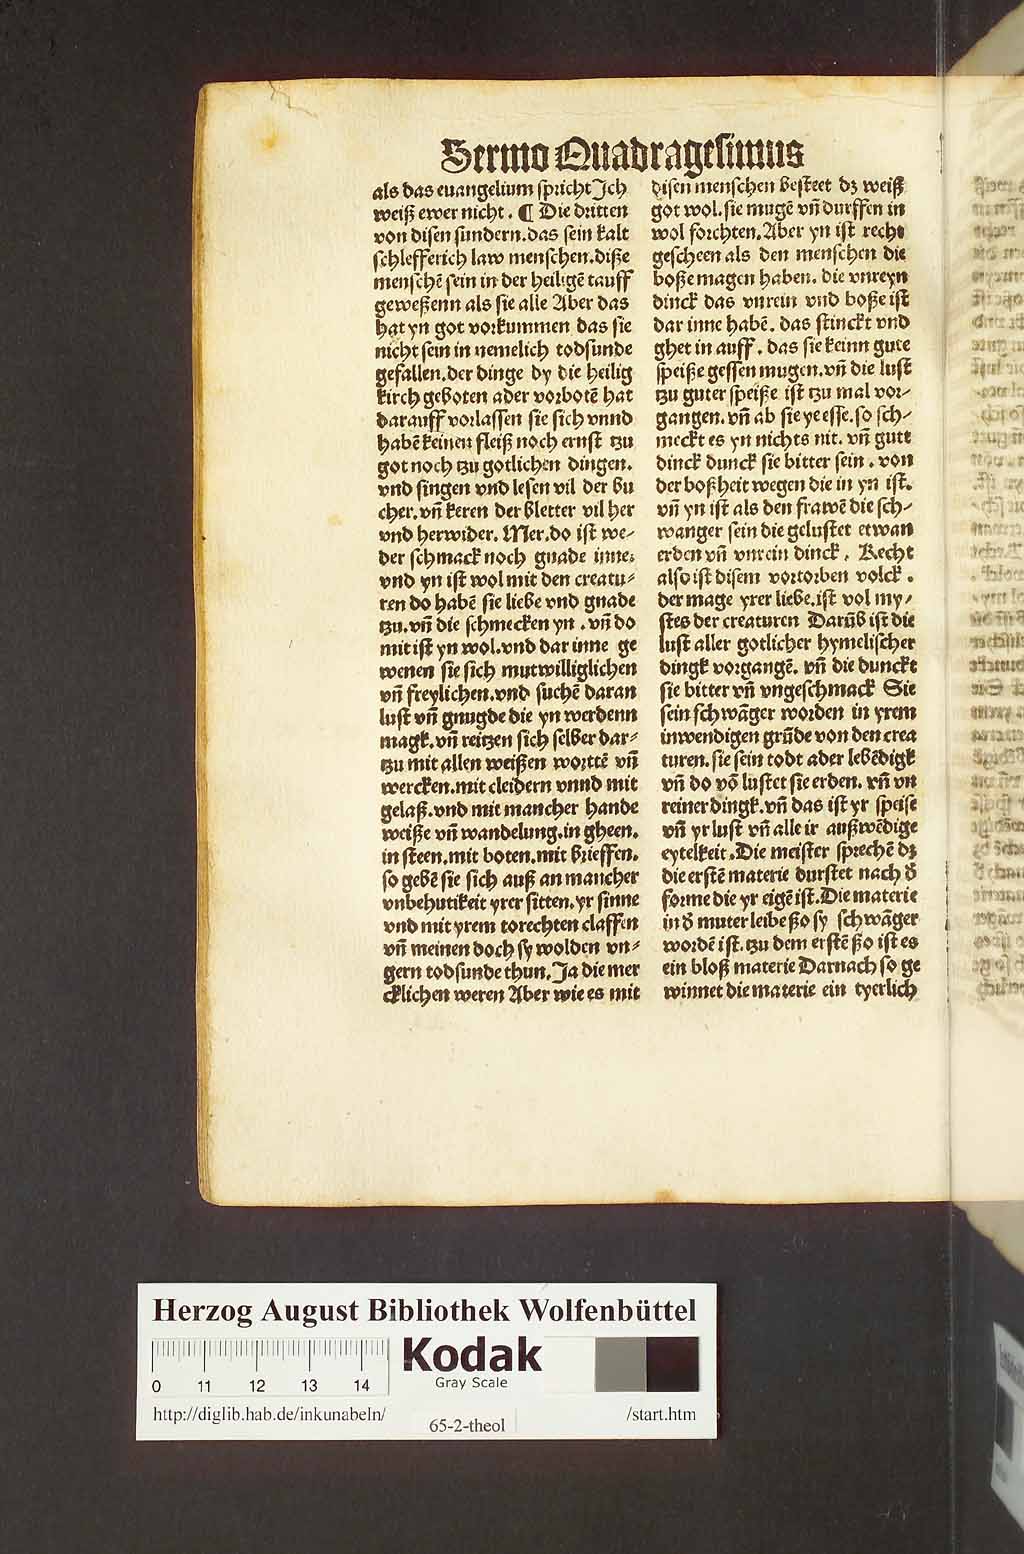 Sermo Quadragesimus
als das euangelium spricht Ich
weiß ewer nicht. ¶ Die dritten
von disen sundern. das sein kalt
schlefferich law menschen. diße
menschē sein in der heiligē tauff
geweßenn als sie alle Aber das
hat yn got vorkummen das sie
nicht sein in nemelich todsunde
gefallen. der dinge dy die heilig
kirch geboten ader vorbotē hat
darauff vorlassen sie sich vnnd
habē keinen fleiß noch ernst tzu
got noch tzu gotlichen dingen.
vnd singen vnd lesen vil der bu
cher. vñ keren der bletter vil her
vnd herwider. Mer. do ist we⸗
der schmack noch gnade inne:
vnd yn ist wol mit den creatu⸗
ren do habē sie liebe vnd gnade
tzu. vñ die schmecken yn . vñ do
mit ist yn wol. vnd dar inne ge
wenen sie sich mutwilliglichen
vñ freylichen. vnd suchē daran
lust vñ gnugde die yn werdenn
magk. vñ reitzen sich selber dar⸗
tzu mit allen weißen worttē vñ
wercken. mit cleidern vnnd mit
gelaß. vnd mit mancher hande
weiße vñ wandelung. in gheen.
in steen. mit boten. mit brieffen.
so gebē sie sich auß an mancher
vnbehutikeit yrer sitten. yr sinne
vnd mit yrem torechten claffen
vñ meinen doch sy wolden vn⸗
gern todsunde thun. Ja die mer
cklichen weren Aber wie es mit
disen menschen besteet dz weiß
got wol. sie mugē vñ durffen in
wol forchten. Aber yn ist recht
gescheen als den menschen die
boße magen haben. die vnreyn
dinck das vnrein vnd boße ist
dar inne habē. das stinckt vnd
ghet in auff. das sie keinn gute
speiße gessen mugen. vñ die lust
tzu guter speiße ist tzu mal vor⸗
gangen. vñ ab sie ye esse. so sch⸗
meckt es yn nichts nit. vñ gute
dinck dunck sie bitter sein . von
der boßheit wegen die in yn ist.
vñ yn ist als den frawē die sch⸗
wanger sein die gelustet etwan
erden vñ vnrein dinck. Recht
also ist disem vortorben volck .
der mage yrer liebe. ist vol my⸗
stes der creaturen Darūb ist die
lust aller gotlicher hymelischer
dingk vorgangē. vñ die dunckt
sie bitter vñ vngeschmack Sie
sein schwāger worden in yrem
inwendigen grūde von den crea
turen. sie sein todt ader lebēdigk
vñ do vō lustet sie erden. vñ vn
reiner dingk. vñ das ist yr speise
vñ yr lust vñ alle ir außwēdige
eytelkeit. Die meister sprechē dz
die erstē materie durstet nach d̕
forme die yr eigē ist. Die materie
in d̕ muter leibe ßo sy schwāger
wordē ist. tzu dem erstē ßo ist es
ein bloß materie Darnach so ge
winnet die materie ein tyerlich
Herzog August Bibliothek Wolfenbüttel
0 11 12 13 14
Kodak
Gray Scale
http://diglib.hab.de/inkunabeln/
65-2-theol
/start.htm